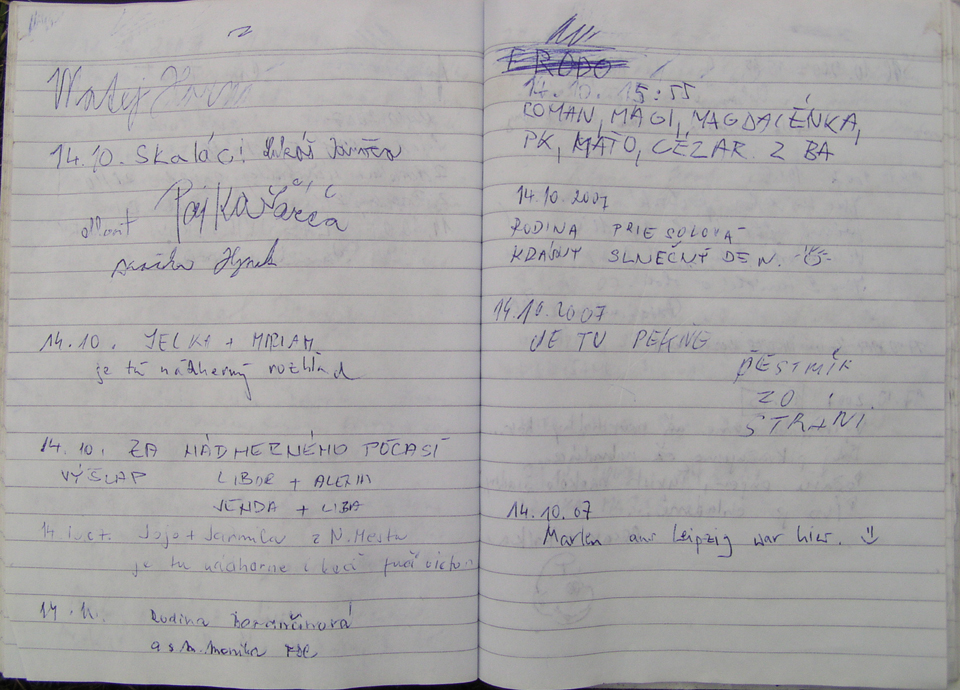 Matej
14.10. Skaláci Lukáš
Hynek
14.10. JELKA + MIRIAM
je tu nádherný rozhľad
14.10. ZA NÁDHERNÉHO POČASÍ
VÝŠLAP LIBOR + ALENA
VENDA + LIBA
Jojo + Jarmila z N. Mesta
je tu nádherne i keď fučí
Rodina
a s m. Monika
ERODO
14.10. 15:55
ROMAN, MAGI, MAGDALÉNKA,
PK, MAŤO, CÉZAR Z BA
14.10.2007
RODINA PRIESOLOVÁ
KRÁSNY SLNEČNÝ DEŇ.
14.10.2007
JE TU PEKNE
PĚSTMÍK
ZO
STRÁNÍ
14.10.07
Marlen aus Leipzig war hier.